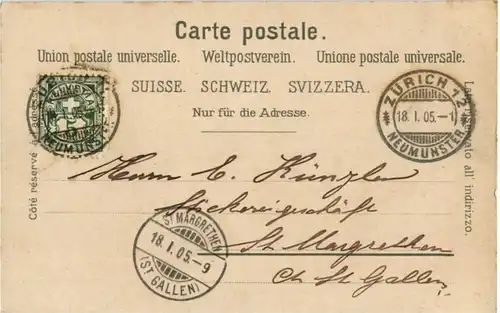 Carte postale.
Union postale universelle. Weltpostverein. Unione postale universale.
SUISSE. SCHWEIZ. SVIZZERA.
Nur für die Adresse.
Côté réservé à
all' indirizzo.
NEUMÜNSTER
ZÜRICH 12
18. I. 05.-1
NEUMÜNSTER
Herrn E. Künzler
St Margrethen
Ct St Gallen
ST MARGRETHEN
18. I. 05.-9
(ST GALLEN)